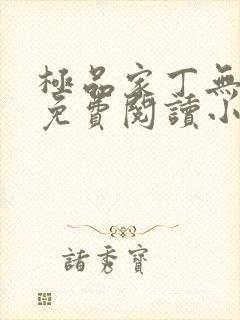 極品家丁無
免費閱讀小
諸秀寶